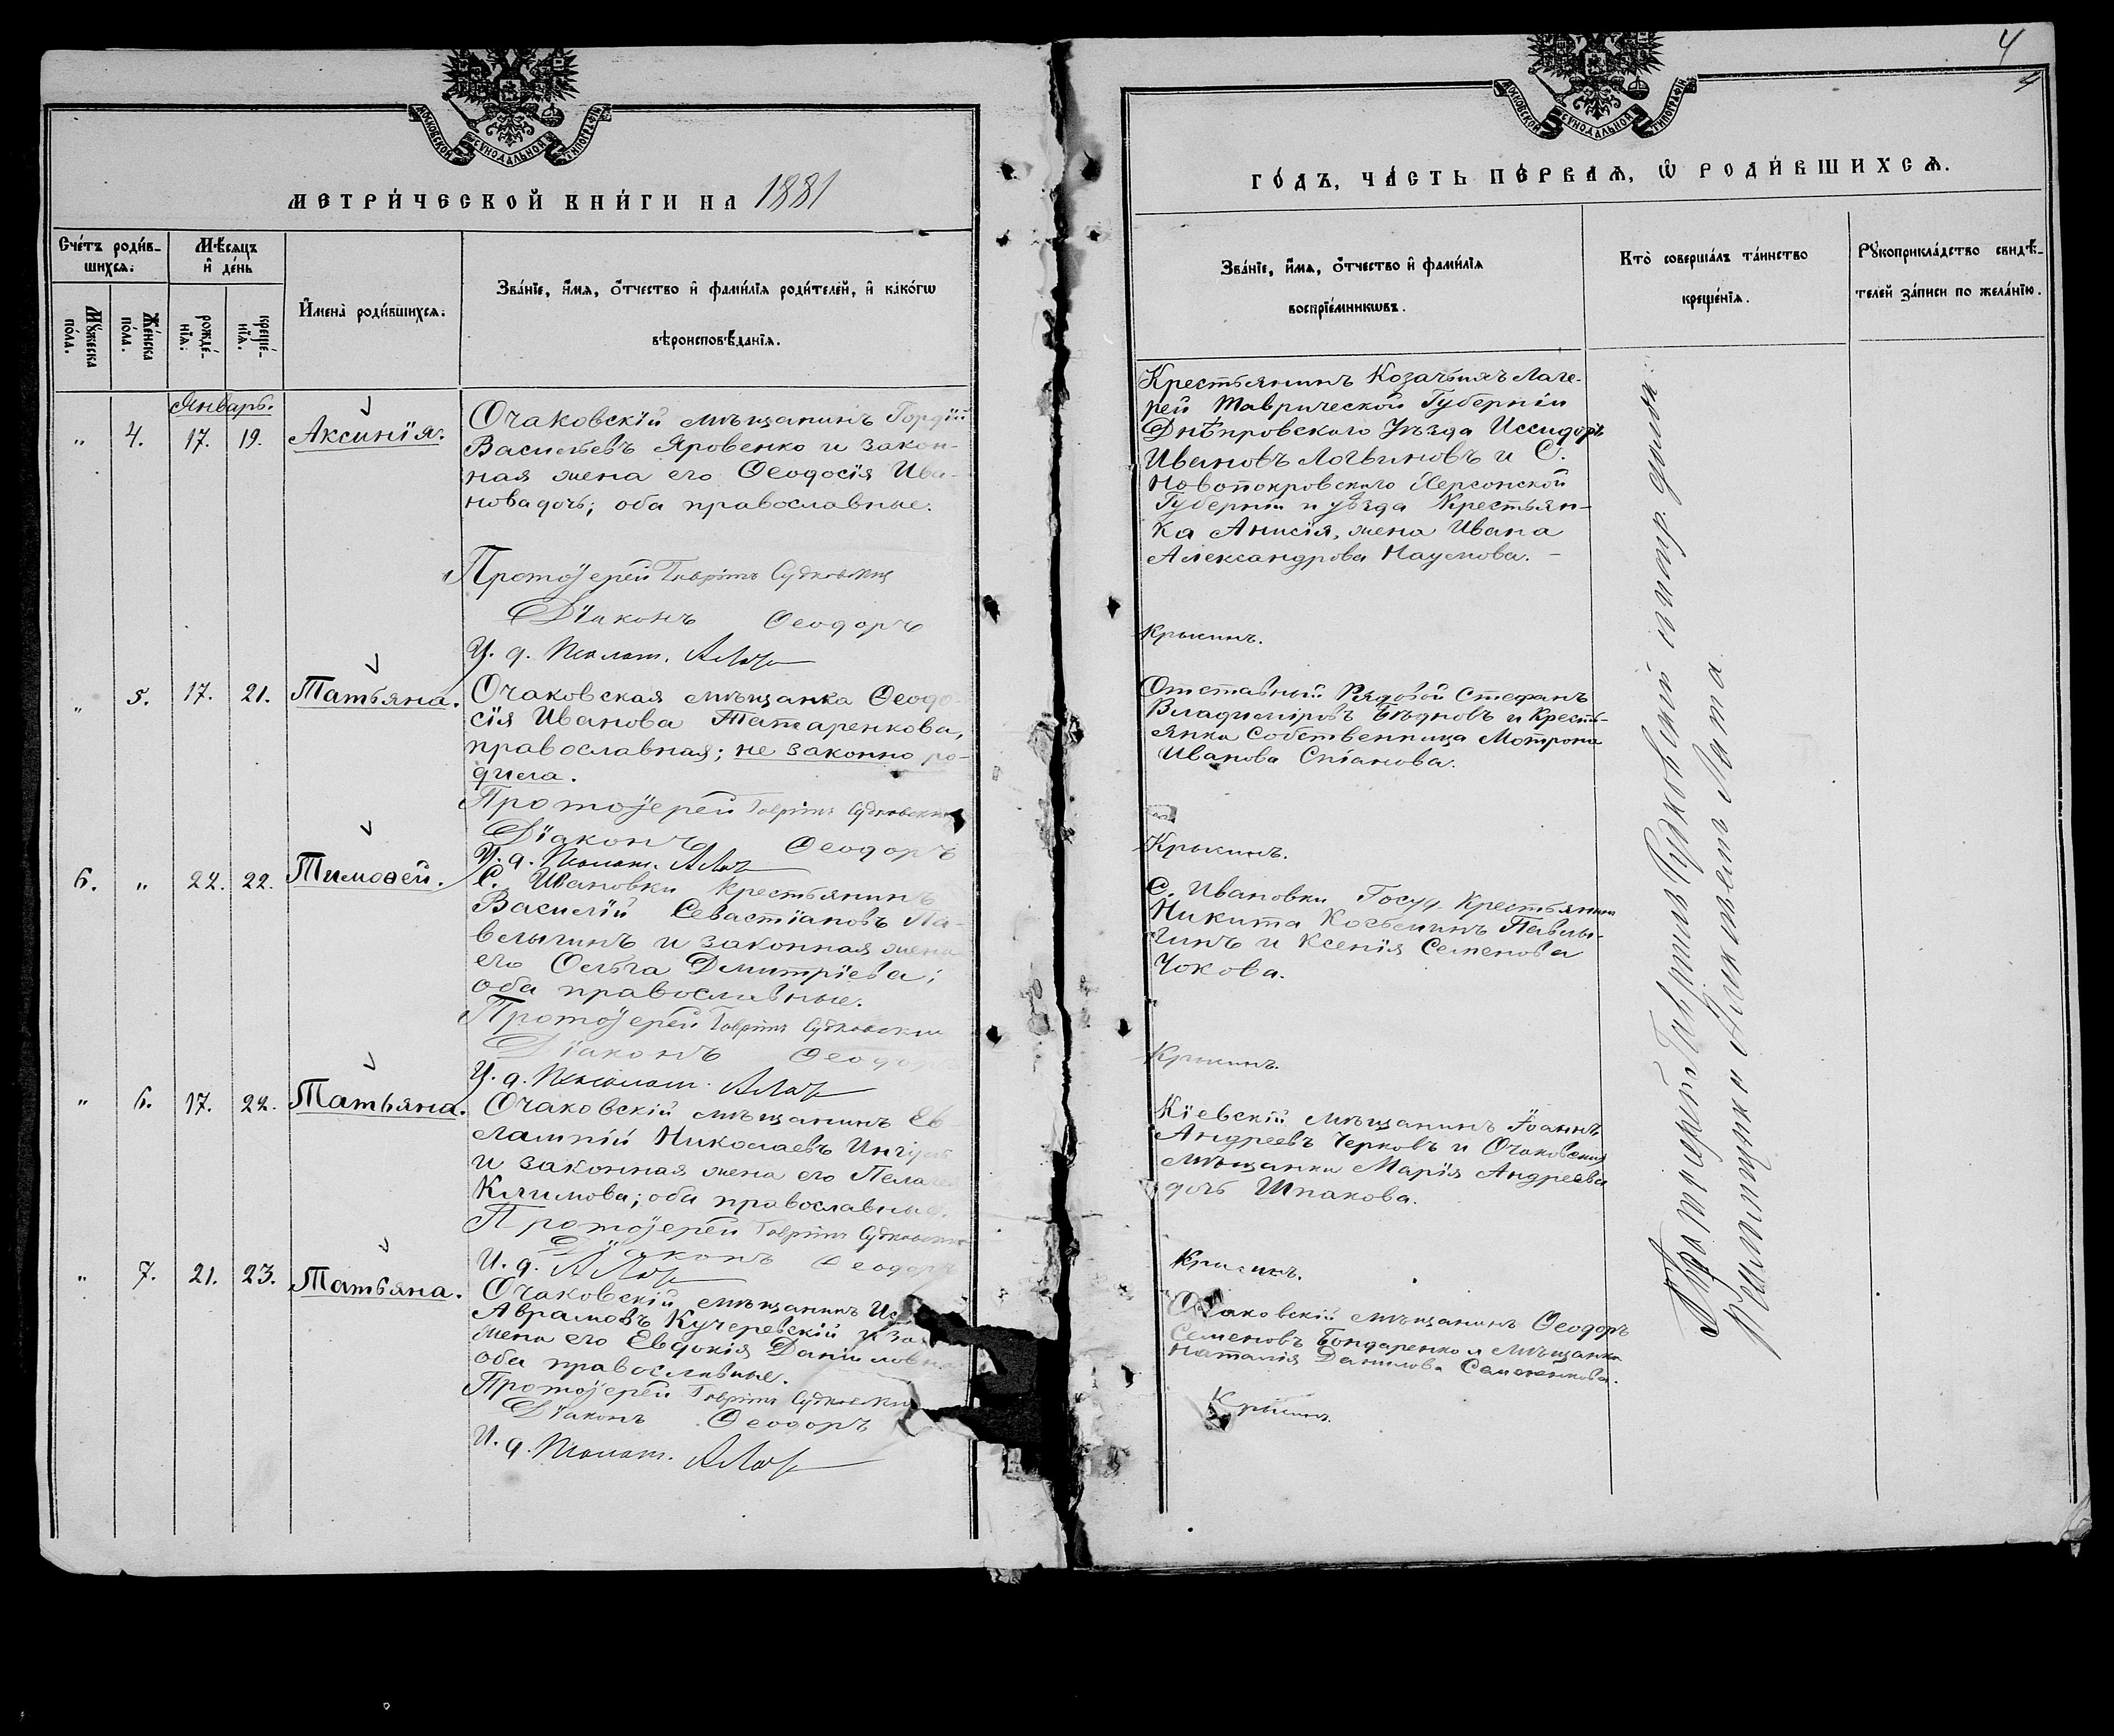 4
4
МОСКОВСКОЙ СѴНОДАЛЬНОЙ ТИПОГРАФІИ
МОСКОВСКОЙ СѴНОДАЛЬНОЙ ТИПОГРАФІИ
МЕТРИ́ЧЕСКОЙ КНИ́ГИ НА 1881
ГО́ДЪ, ЧА́СТЬ ПЕ́РВАѦ, Ѽ РОДИ́ВШИХСѦ.
Сче́тъ роди́в-
шихсѧ:
Мꙋ́жеска
по́ла.
Же́нска
по́ла.
Мѣ́сяцъ
и҆ де́нь
рожде́-
нїѧ:
креще́-
нїѧ.
И҆мена̀ роди́вшихсѧ.
Зва́нїе, и҆́мѧ, о҆́тчество и҆ фами́лїѧ роди́телей, и҆ како́гѡ
вѣроисповѣ́данїѧ.
Зва́нїе, и҆́мѧ, о҆́тчество и҆ фами́лїѧ
воспрїе́мникѡвъ.
Кто̀ соверша́лъ та́инство
креще́нїѧ.
Рꙋкоприкла́дство свидѣ́-
телей за́писи по жела́нїю.
Январь.
" 4. 17. 19. Аксинія.
Очаковскій мѣщанинъ Гордій
Васильевъ Яровенко и закон-
ная жена его Ѳеодосія Ива-
нова дочь; оба православные.
Протоіерей Гавріилъ Судковскій
Діаконъ Ѳеодоръ
И. д. Псалом.
Крестьянинъ Козачьихъ Лаге-
рей Таврической Губерніи
Днѣпровскаго Уѣзда Иссидоръ
Ивановъ Логвиновъ и С.
Новопокровскаго Херсонской
Губерніи и уѣзда Крестьян-
ка Анисія, жена Ивана
Александрова Наумова. –
Крыжинъ.
" 5. 17. 21. Татьяна.
Очаковская мѣщанка Ѳеодо-
сія Иванова Татаренкова,
православная; не законно ро-
дила.
Протоіерей Гавріилъ Судковскій
Діаконъ Ѳеодоръ
И. д. Псалом.
Отставный Рядовой Стефанъ
Владиміровъ Бѣдновъ и Кресть-
янка Собственница Мотрона
Иванова
Крыжинъ.
6. " 22. 22. Тимоѳей.
С. Ивановки Крестьянинъ
Василій Севастіановъ Па-
велыгинъ и законная жена
его Ольга Дмитріева;
оба православные.
Протоіерей Гавріилъ Судковскій
Діаконъ Ѳеодоръ
И. д. Псалом.
С. Ивановки Госуд. Крестьянинъ
Никита Косьминъ Павелы-
гинъ и Ксенія Семенова
Чокова.
Крыжинъ.
" 6. 17. 22. Татьяна.
Очаковскій мѣщанинъ Ев-
лампій Николаевъ
и законная жена его Пелагея
Климова; оба православные.
Протоіерей Гавріилъ Судковскій
Діаконъ Ѳеодоръ
И. д.
Кіевскій мѣщанинъ Іоаннъ
Андреевъ Черковъ и Очаковская
мѣщанка Марія Андреева
дочь Шпакова.
Крыжинъ.
" 7. 21. 23. Татьяна.
Очаковскій мѣщанинъ
Аврамовъ Кучеревскій и
жена его Евдокія Даниловна
оба православные.
Протоіерей Гавріилъ Судковскій
Діаконъ Ѳеодоръ
И. д. Псалом.
Очаковскій мѣщанинъ Ѳеодоръ
Семеновъ Бондаренко и мѣщанка
Наталія Данилова Семененкова.
Крыжинъ.
Протоіерей Гавріилъ Судковскій
Псаломщикъ Лата